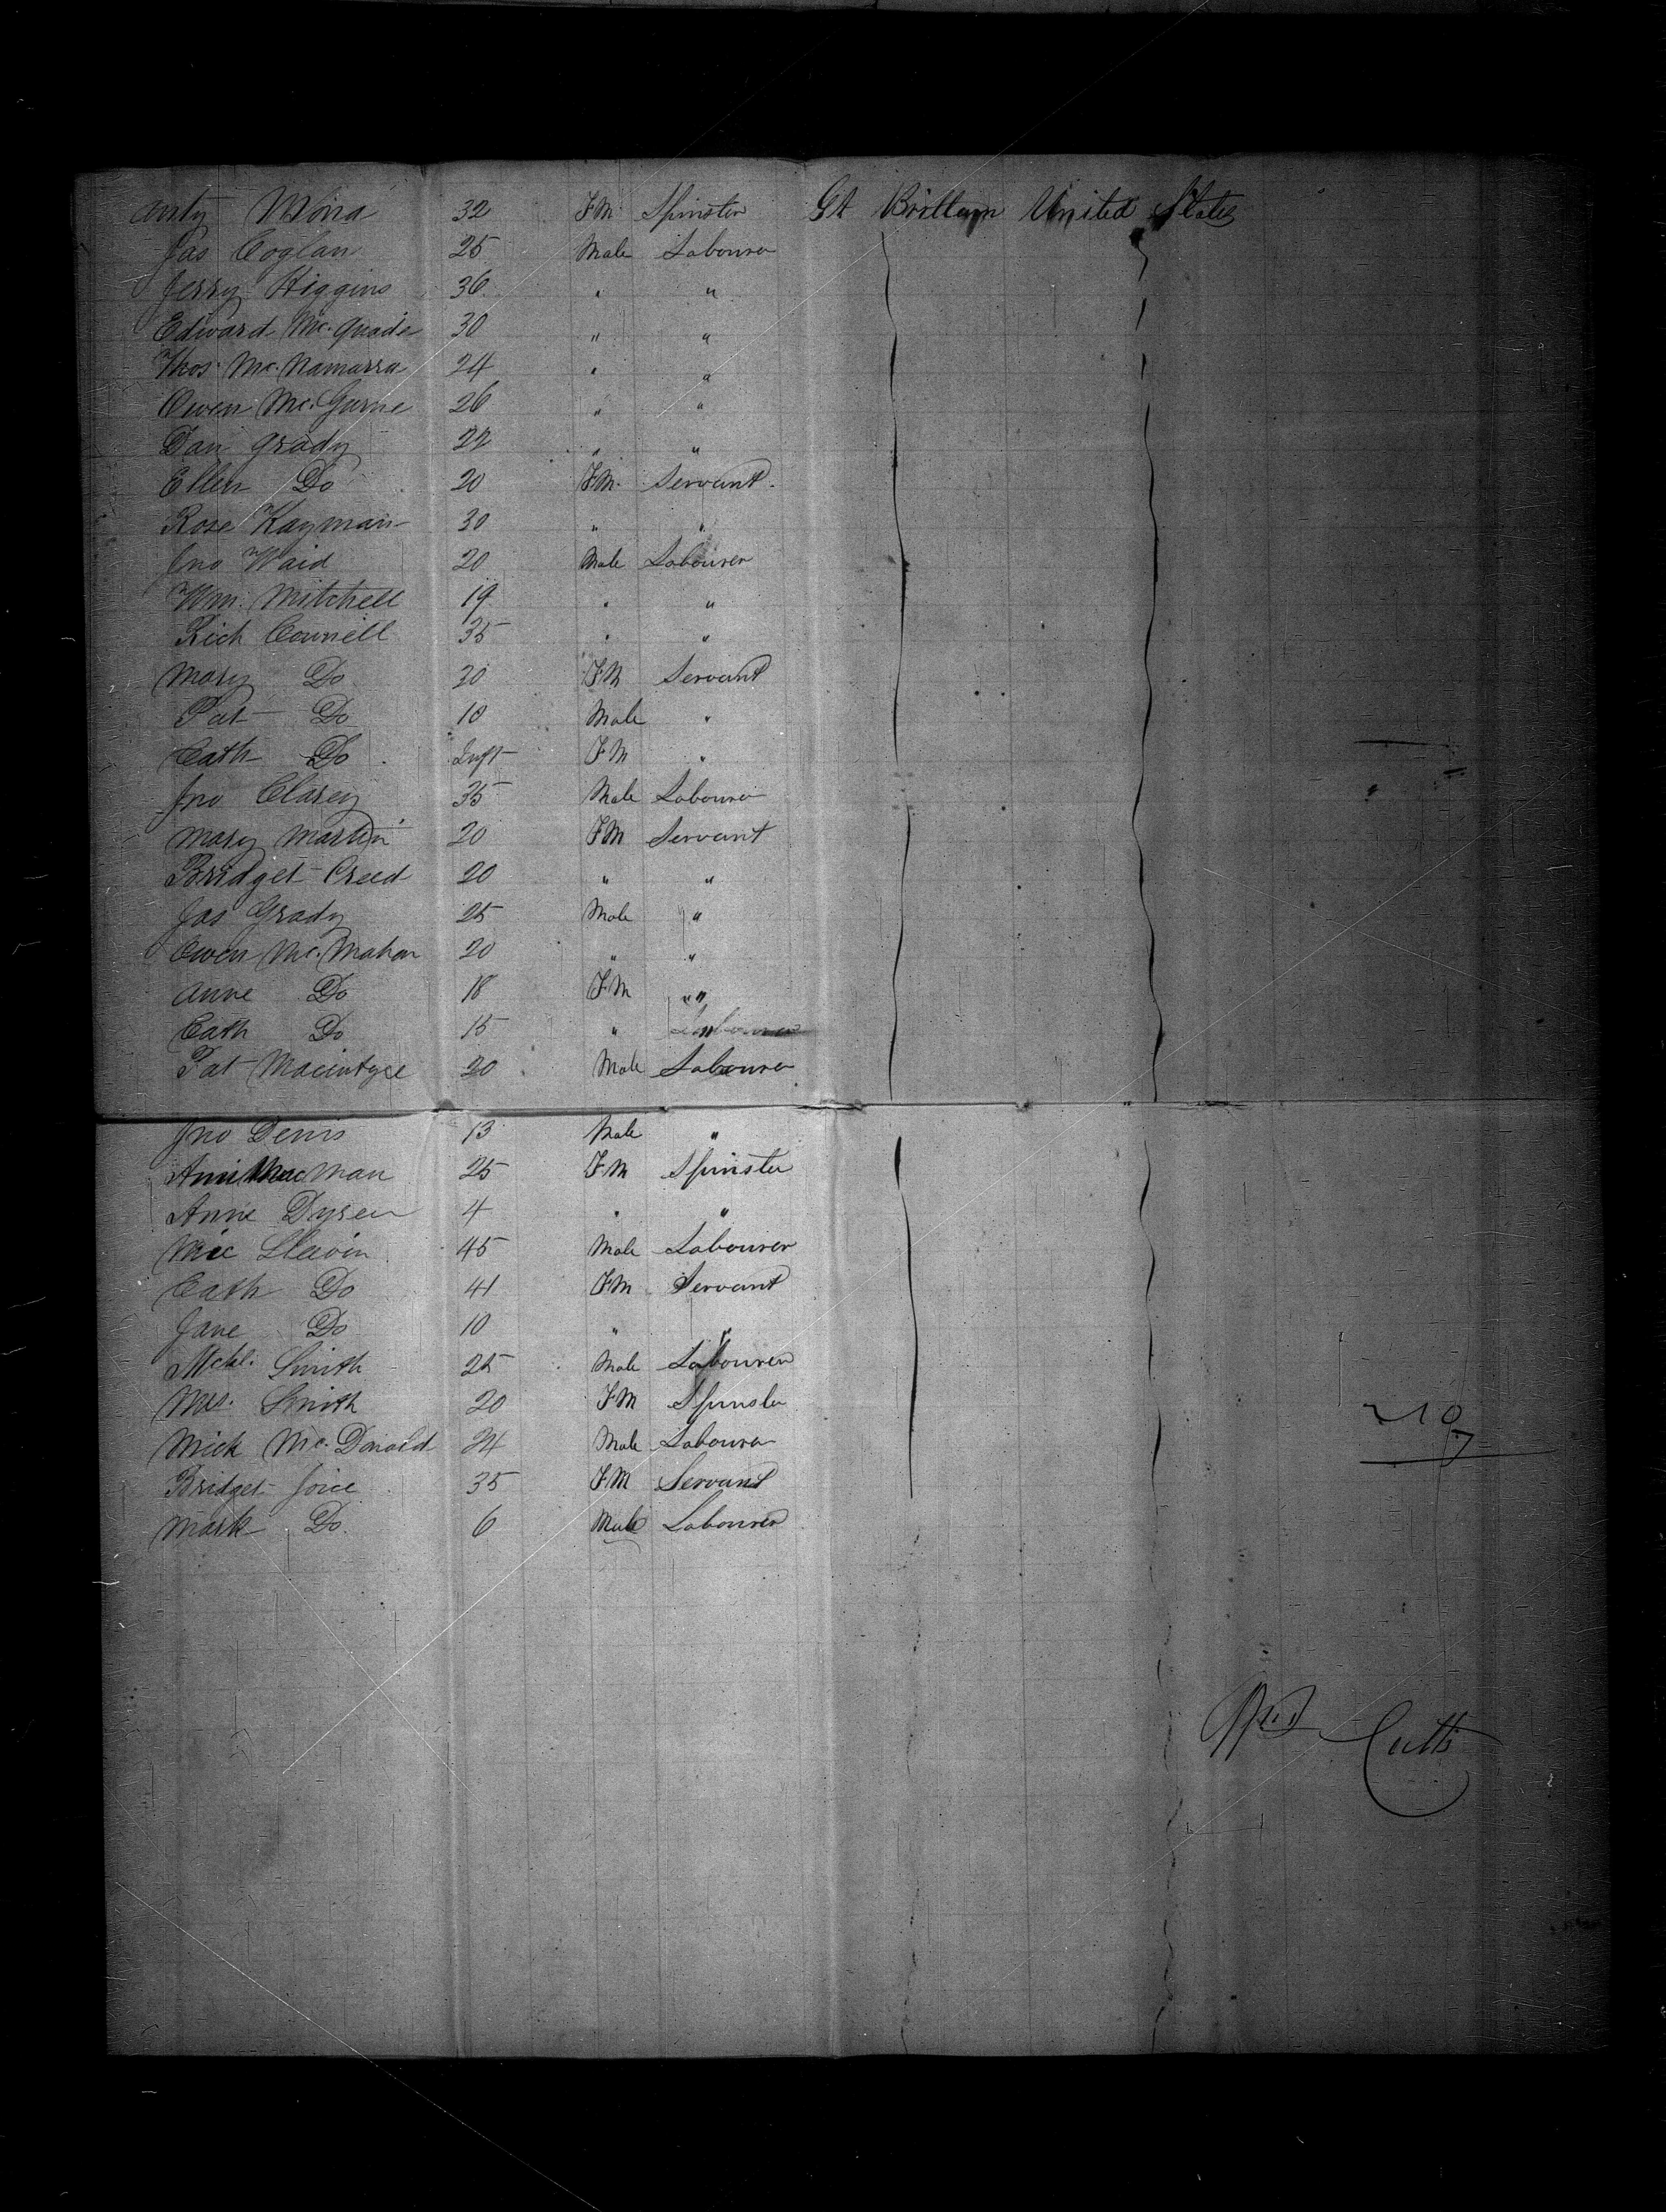 Mona 32 FM Spinster Gt Brittam United States
Jas Coglan 25 Male Labourer
Jerry Higgins 36 " "
Edward Mc. Quade 30 " "
Thos. Mc. Namarra 24 " "
Owen Mc. Gurne 26 " "
Dan Grady 22 " "
Ellen Do 20 FM. Servant.
Rose Kayman 30 " "
Jno Waid 20 Male Labourer
Wm. Mitchell 19 " "
Rich Connell 35 " "
Mary Do 30 FM Servant
Pat Do 10 Male "
Cath Do Inft FM "
Jno Clarey 35 Male Labourer
Mary Martin 20 FM Servant
Bridget Creed 20 " "
Jas Grady 25 Male "
Owen Mc. Mahon 20 " "
Anne Do 18 FM "
Cath Do 15 " "
Pat Macintyre 20 Male Labourer
Jno Denis 13 Male "
Ann MacMan 25 FM Spinster
Anne Dysen 4 " "
Mic Slavin 45 Male Labourer
Cath Do 41 FM Servant
Jane Do 10 " "
Mchl. Smith 25 Male Labourer
Mrs. Smith 20 FM Spinster
Mick Mc. Donald 24 Male Labourer
Bridget Joice 35 FM Servant
Mark Do. 6 Male Labourer
Cutts